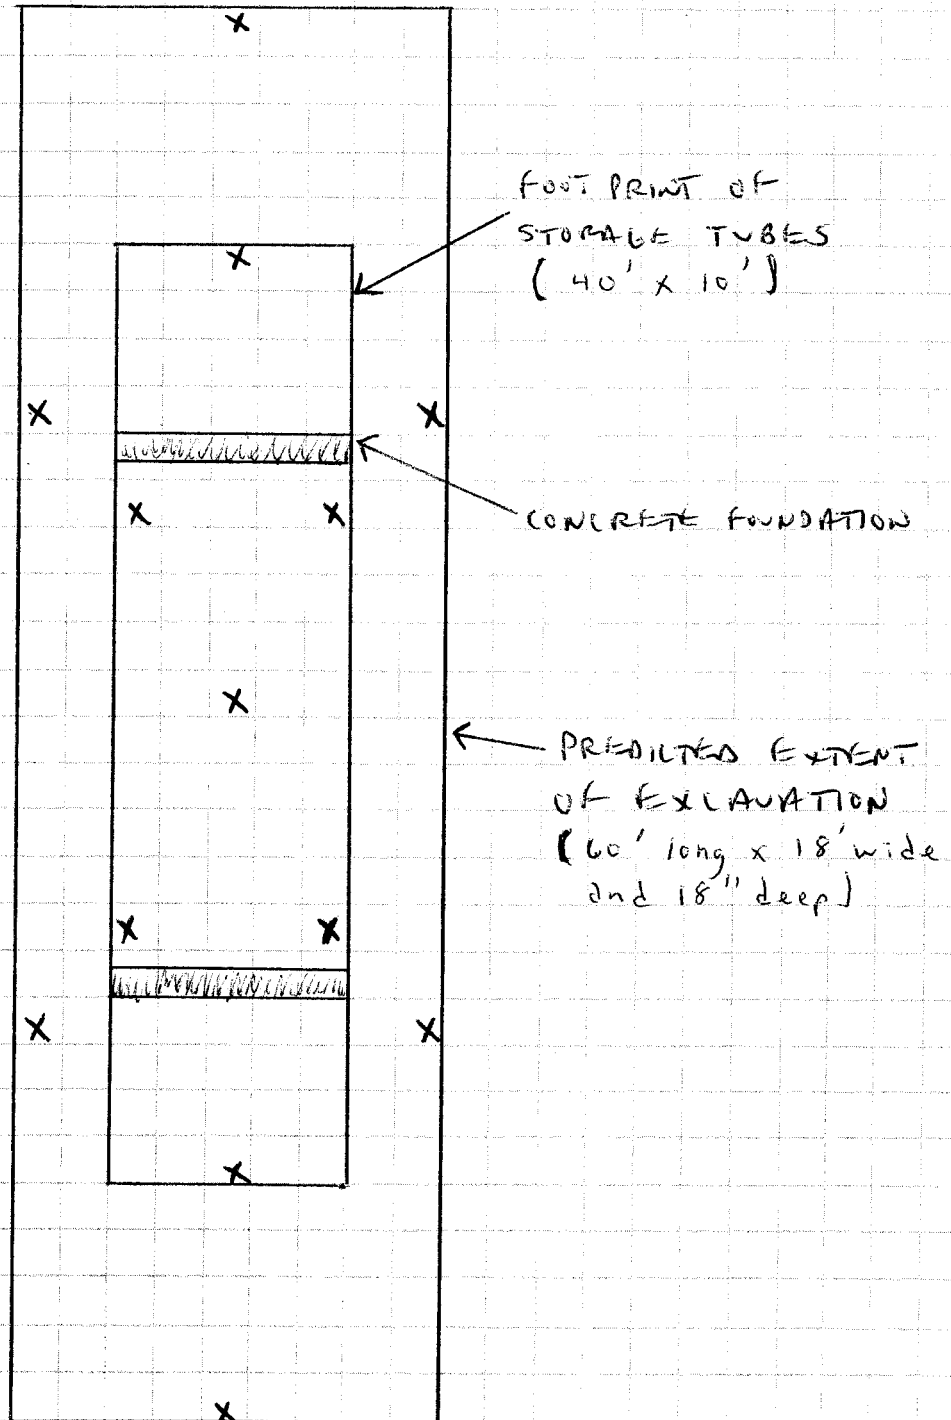 FOOT PRINT OF
STORAGE TUBES
( 40' x 10' )
CONCRETE FOUNDATION
PREDICTED EXTENT
OF EXCAVATION
( 60' long x 18' wide
and 18" deep )
X
X
X
X
X
X
X
X
X
X
X
X
X